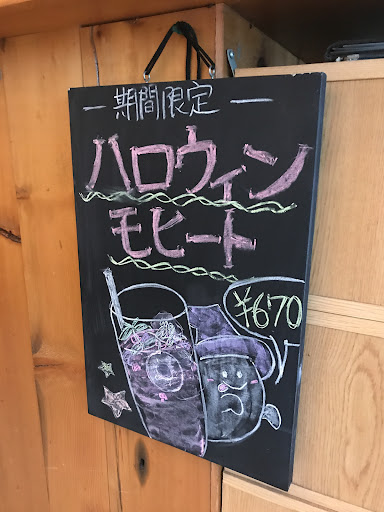 期間限定
ハロウィン
モヒート
¥670